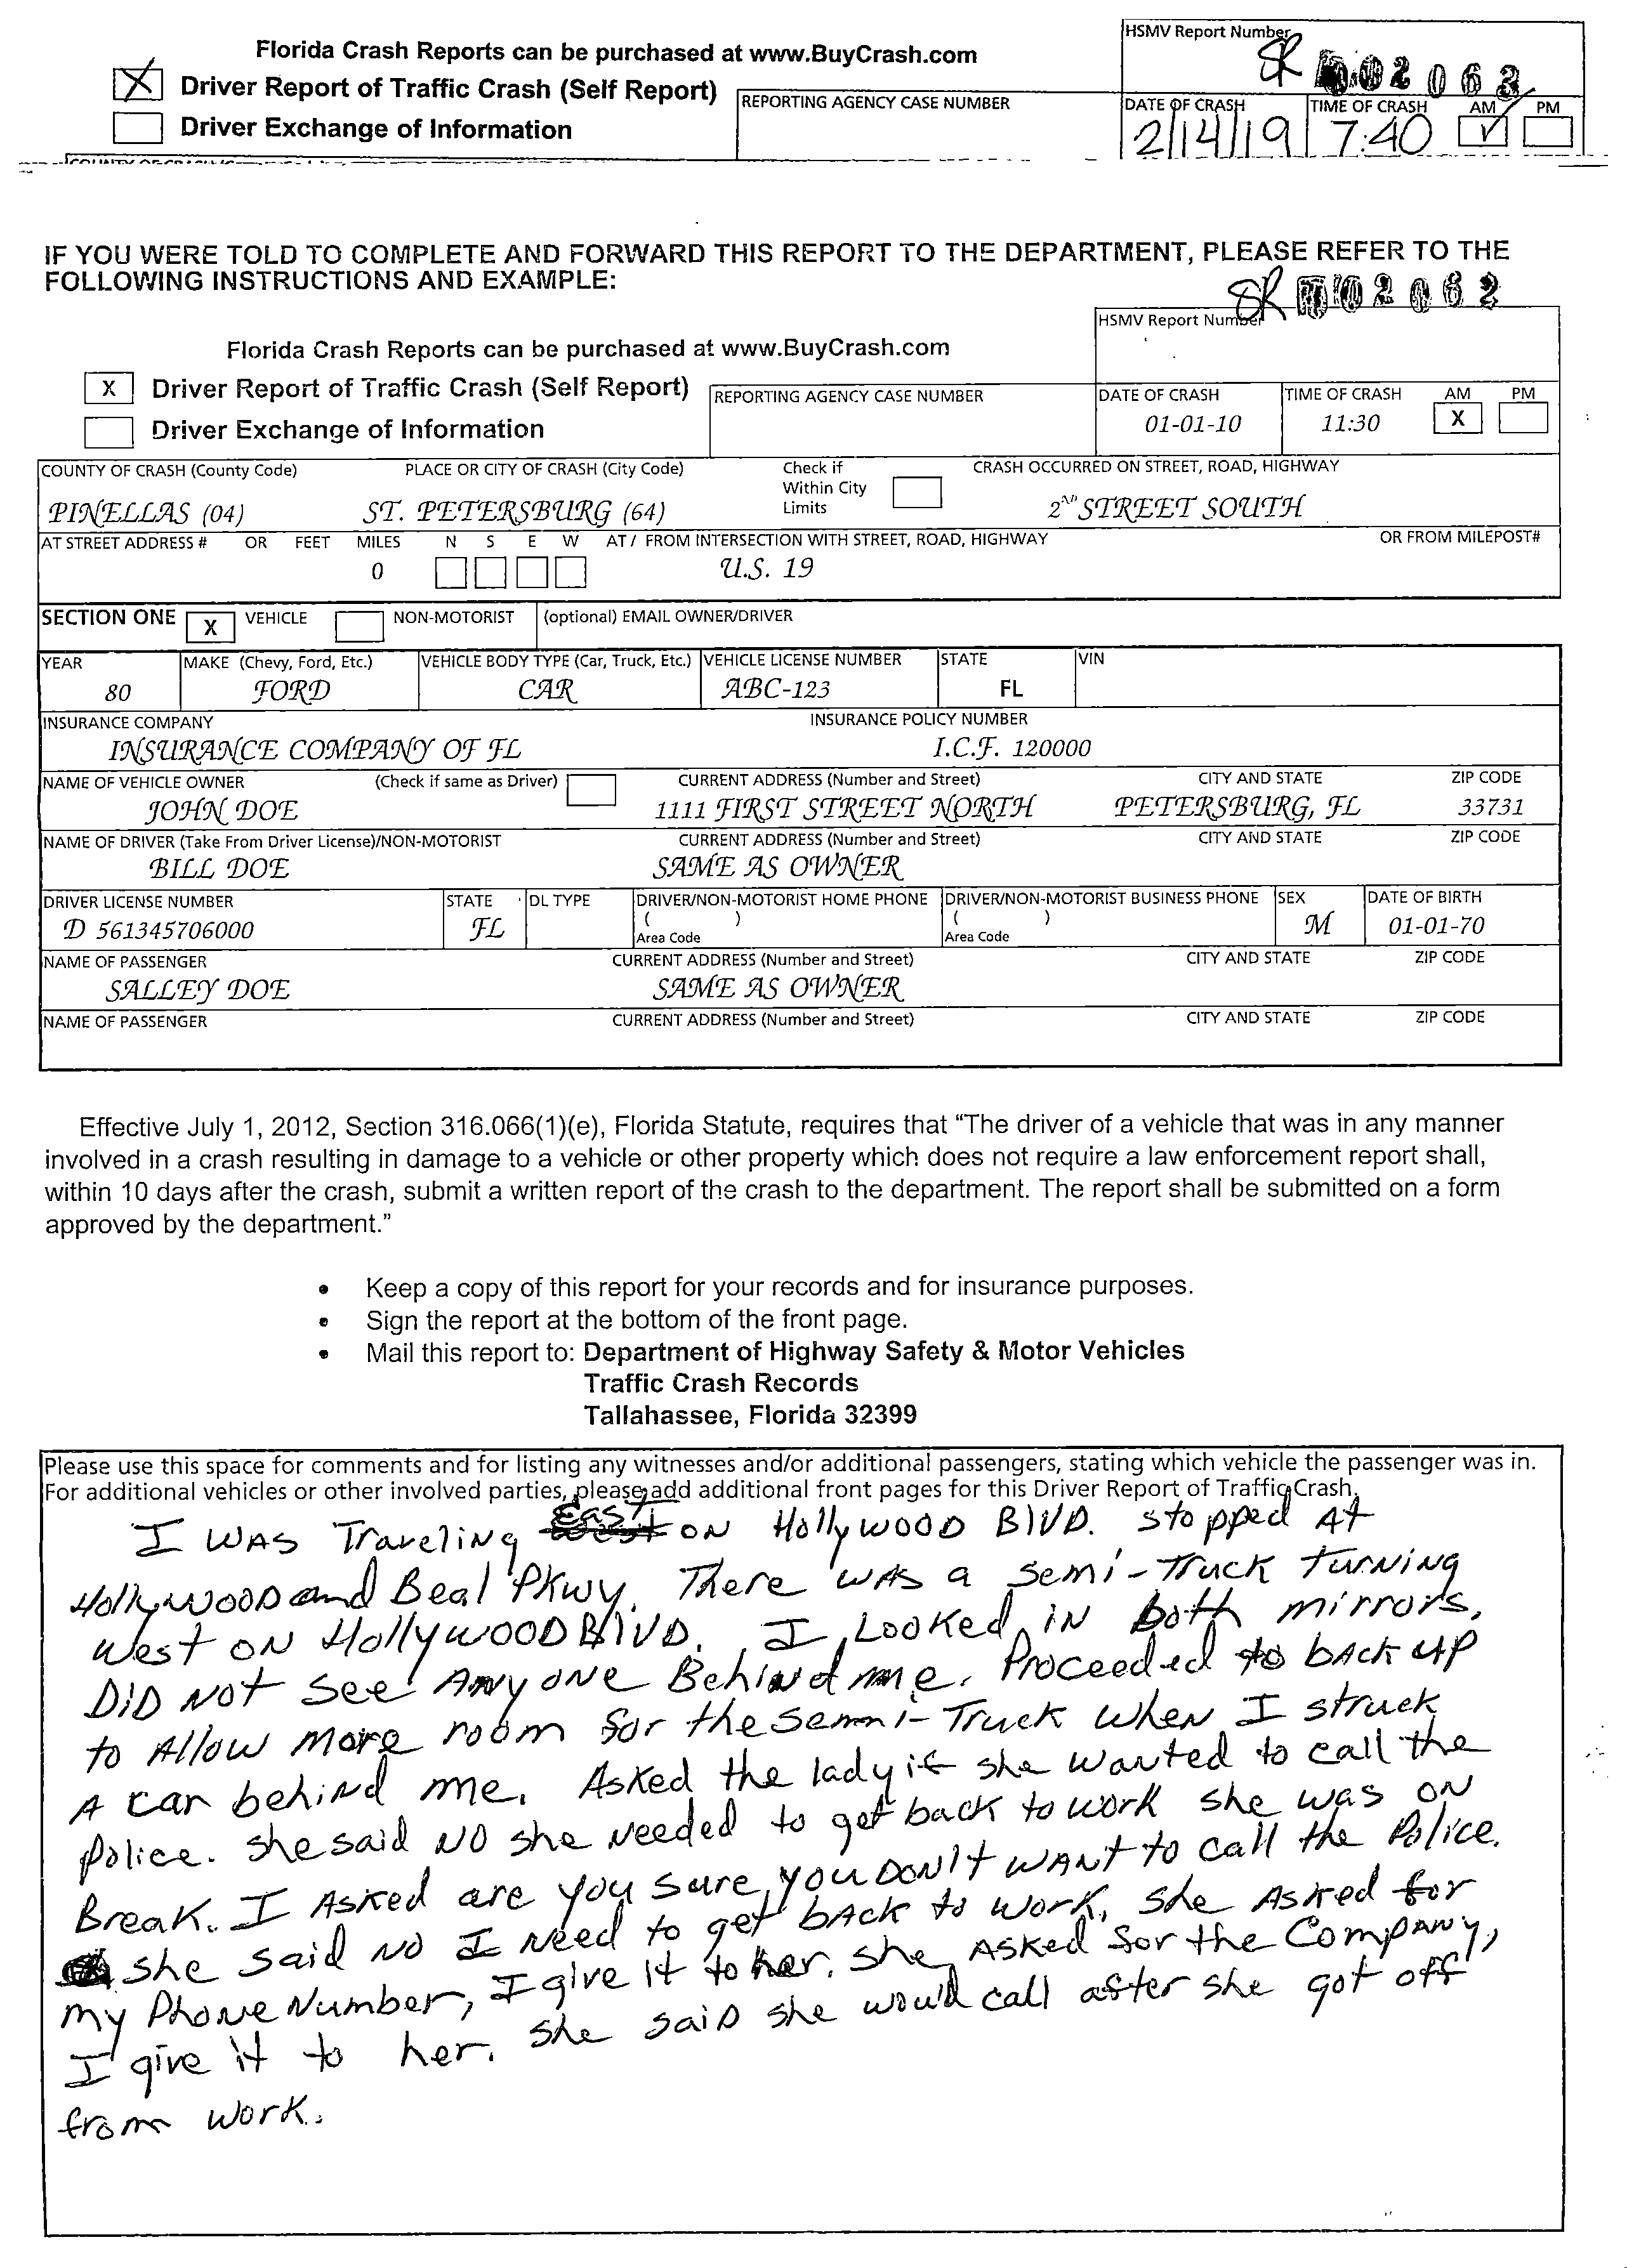 HSMV Report Number
Florida Crash Reports can be purchased at www.BuyCrash.com
SR 02063
X Driver Report of Traffic Crash (Self Report)
REPORTING AGENCY CASE NUMBER
DATE OF CRASH TIME OF CRASH AM PM
Driver Exchange of Information
2/14/19 7:40 ✓
IF YOU WERE TOLD TO COMPLETE AND FORWARD THIS REPORT TO THE DEPARTMENT, PLEASE REFER TO THE
FOLLOWING INSTRUCTIONS AND EXAMPLE:
SR 02062
HSMV Report Number
Florida Crash Reports can be purchased at www.BuyCrash.com
X Driver Report of Traffic Crash (Self Report)
REPORTING AGENCY CASE NUMBER
DATE OF CRASH TIME OF CRASH AM PM
01-01-10 11:30 X
Driver Exchange of Information
COUNTY OF CRASH (County Code) PLACE OR CITY OF CRASH (City Code) Check if Within City Limits CRASH OCCURRED ON STREET, ROAD, HIGHWAY
PINELLAS (04) ST. PETERSBURG (64) 2ND STREET SOUTH
AT STREET ADDRESS # OR FEET MILES N S E W AT / FROM INTERSECTION WITH STREET, ROAD, HIGHWAY OR FROM MILEPOST#
0 U.S. 19
SECTION ONE X VEHICLE NON-MOTORIST (optional) EMAIL OWNER/DRIVER
YEAR MAKE (Chevy, Ford, Etc.) VEHICLE BODY TYPE (Car, Truck, Etc.) VEHICLE LICENSE NUMBER STATE VIN
80 FORD CAR ABC-123 FL
INSURANCE COMPANY INSURANCE POLICY NUMBER
INSURANCE COMPANY OF FL I.C.F. 120000
NAME OF VEHICLE OWNER (Check if same as Driver) CURRENT ADDRESS (Number and Street) CITY AND STATE ZIP CODE
JOHN DOE 1111 FIRST STREET NORTH PETERSBURG, FL 33731
NAME OF DRIVER (Take From Driver License)/NON-MOTORIST CURRENT ADDRESS (Number and Street) CITY AND STATE ZIP CODE
BILL DOE SAME AS OWNER
DRIVER LICENSE NUMBER STATE DL TYPE DRIVER/NON-MOTORIST HOME PHONE DRIVER/NON-MOTORIST BUSINESS PHONE SEX DATE OF BIRTH
D 561345706000 FL ( ) Area Code ( ) Area Code M 01-01-70
NAME OF PASSENGER CURRENT ADDRESS (Number and Street) CITY AND STATE ZIP CODE
SALLEY DOE SAME AS OWNER
NAME OF PASSENGER CURRENT ADDRESS (Number and Street) CITY AND STATE ZIP CODE
Effective July 1, 2012, Section 316.066(1)(e), Florida Statute, requires that “The driver of a vehicle that was in any manner
involved in a crash resulting in damage to a vehicle or other property which does not require a law enforcement report shall,
within 10 days after the crash, submit a written report of the crash to the department. The report shall be submitted on a form
approved by the department.”
• Keep a copy of this report for your records and for insurance purposes.
• Sign the report at the bottom of the front page.
• Mail this report to: Department of Highway Safety & Motor Vehicles
Traffic Crash Records
Tallahassee, Florida 32399
Please use this space for comments and for listing any witnesses and/or additional passengers, stating which vehicle the passenger was in.
For additional vehicles or other involved parties, please add additional front pages for this Driver Report of Traffic Crash.
I WAS Traveling East ON HollyWOOD BlVD. stopped At
HollyWOOD and Beal Pkwy. There WAS a semi-Truck turning
West ON HollyWOOD BlVD. I Looked in both mirrors,
DiD Not See Anyone Behind me. Proceeded to bACK up
to Allow more room for the semi-Truck when I struck
A car behind me. Asked the lady if she wanted to call the
police. She said NO she needed to get back to work she was on
Break. I Asked are you sure, you DON't WANt to call the Police.
she said NO I Need to get bAck to work. She Asked for
my Phone Number, I give it to her. She Asked for the Company,
I give it to her. She said she would call after she got off
from work.